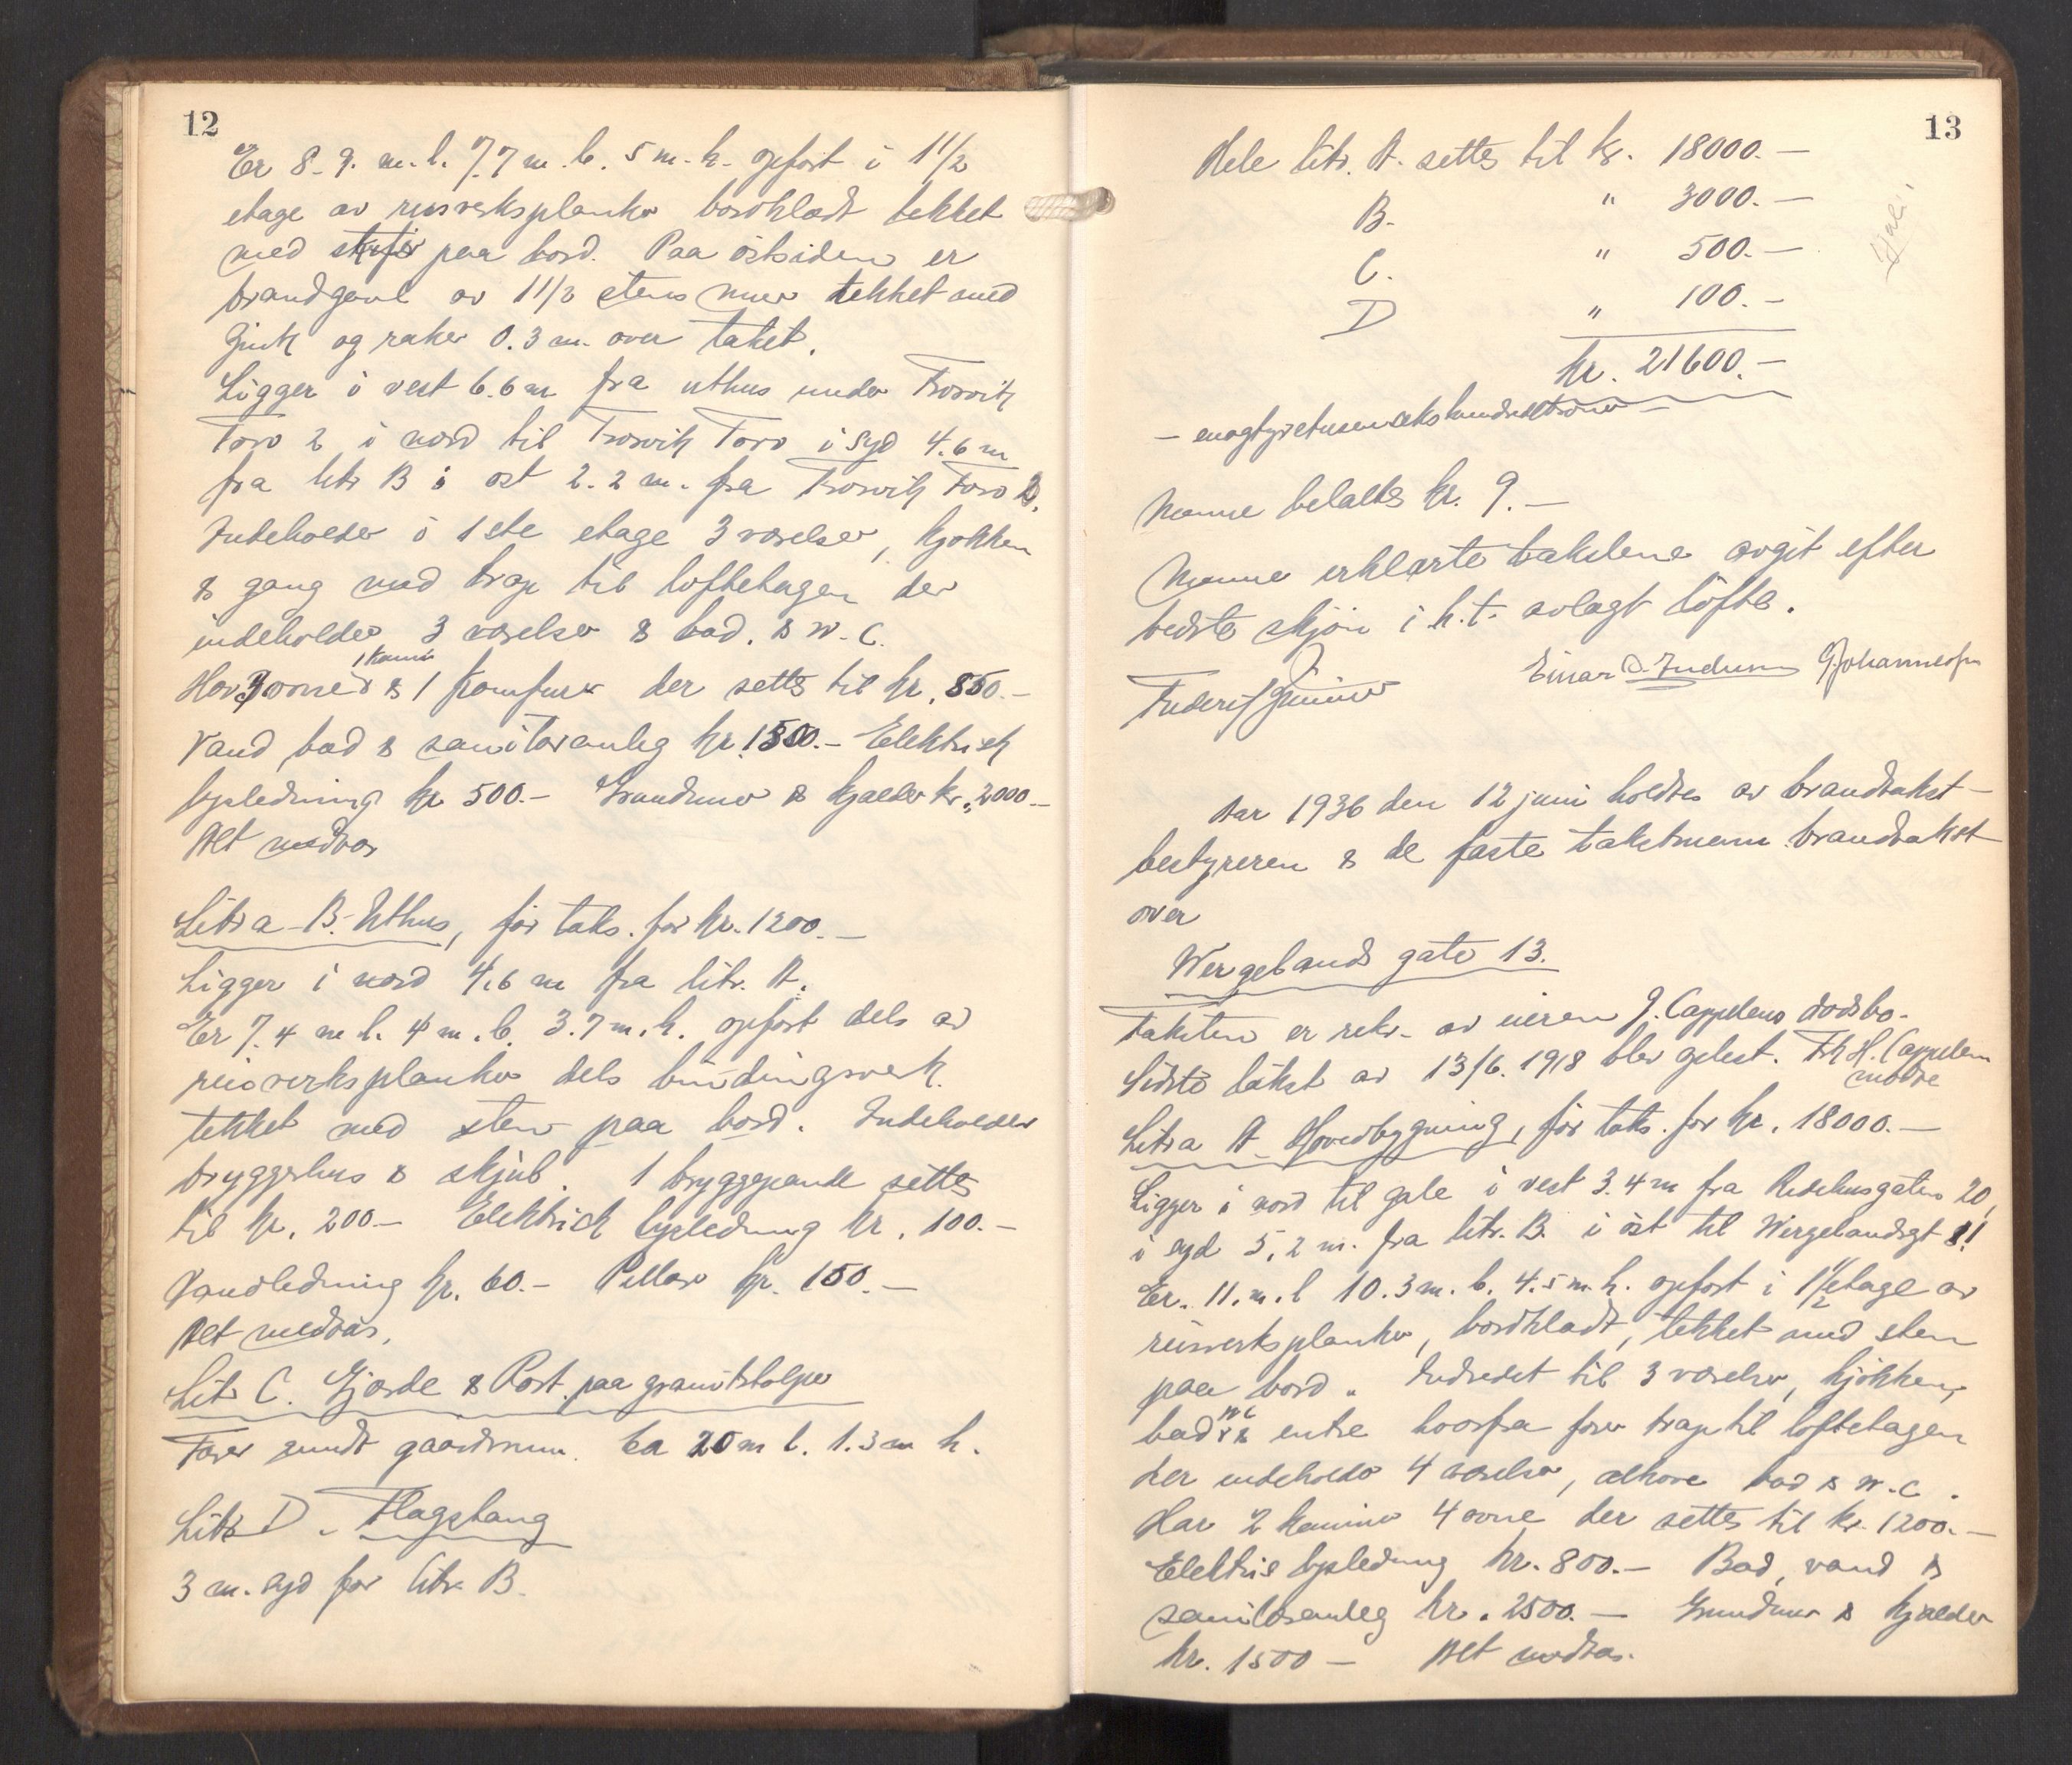 12
Er 8.9. m. l. 7.7 m. b. 5 m. h. opført i 1 1/2
etage av reisverksplanker bordklædt tekket
med skifer paa bord. Paa östsiden er
brandgavl av 1 1/2 stens mur tekket med
Zink og raker 0.3 m. over taket.
Ligger i vest 6.6 m fra uthus under Trosvik
Torv 2 i nord til Trosvik Torv i syd 4.6 m
fra litr B i ost 2.2 m. fra Trosvik Torv
Indeholder i 1ste etage 3 værelser, kjøkken
& gang med trap til loftetagen der
indeholder 3 værelser & bad. & W.C.
1 Kamin
Har 3 ovne & 1 komfur der settes til kr. 850.-
Vand, bad & sanitæranleg kr. 1500.- Elektrisk
lysledning kr 500.- Grundmur & kjælder kr. 2000.-
Alt medtas
Litra B. Uthus, før taks. for kr. 1200.-
Ligger i nord 4.6 m fra litr. A.
Er 7.4 m l. 4 m. b. 3.7 m. h. opført dels av
reisverksplanker dels bindingsverk
tekket med sten paa bord. Indeholder
bryggerhus & skjul. 1 bryggepande settes
til kr. 200.- Elektrisk lysledning kr. 100.-
Vandledning kr. 60.- Pillarer kr. 150.-
Alt medtas.
Litr C. Gjærde & Port paa granitstolper
Fører rundt gaardsrum. Ca 20 m l. 1.3 m h.
Litr D. Flagstang
3 m. syd for litr. B.
13
Hele litr. A. settes til kr. 18000.-
B. " 3000.-
C. " 500.-
D " 100.-
kr. 21600.-
- enogtyvetusensekshundredekroner -
Mænne betaltes kr. 9.-
Mænne erklærte takstene avgit efter
bedste skjön i h.t. avlagt löfte.
Einar D. Johannesen
Aar 1936 den 12 juni holdtes av brandtakst-
bestyreren & de faste takstmænn brandtakst
over
Wergelands gate 13.
Taksten er rekv. av eieren J. Cappelens dødsbo.
Sidste takst av 13/6. 1918 blev gelest. Frk H. Cappelen
mødte
Litra A Hovedbygning, før taks. for kr. 18000.-
Ligger i nord til gate i vest 3.4 m fra Ridehusgaten 20,
i syd 5.2 m. fra litr. B. i öst til Wergelandsgt 11
Er. 11. m. l 10.3 m. b. 4.5 m. h. opført i 1 1/2 etage av
reisverksplanker, bordklædt, tekket med sten
paa bord. Indredet til 3 værelser, kjøkken,
WC
bad & entre hvorfra fører trap til loftetagen
der indeholder 4 værelser, alkove bad & W.C.
Har 2 kaminer 4 ovne der settes til kr. 1200.-
Elektrisk lysledning kr. 800.- Bad, vand &
sanitæranleg kr. 2500.- Grundmur & kjælder
kr. 1500 - Alt medtas.